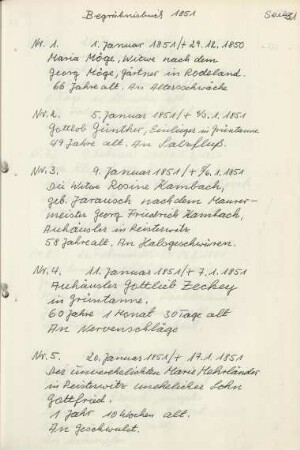 Begräbnisbuch 1851
Seite 1
Nr. 1. 1. Januar 1851/+ 29.12.1850
Maria Möge, Witwe nach dem
Georg Möge, Gärtner in Rodeland.
66 Jahre alt. An Altersschwäche
Nr. 2. 5. Januar 1851/+ 1851
Gottlob Günther, Einlieger in Grüntanne
49 Jahre alt. An
Nr. 3. 9. Januar 1851/+ 6/1. 1851
Die Witwe Rosine Kambach,
geb. Jarausch nach dem Maurer-
meister Georg Friedrich Kambach,
Auhäusler in Peisterwitz
58 Jahre alt. An Halsgeschwüren.
Nr. 4. 11. Januar 1851/+ 7.1.1851
Auhäusler Gottlieb Zeckey
in Grüntanne.
60 Jahre 1 Monat 30 Tage alt
An Nervenschläge
Nr. 5. 20. Januar 1851/+ 17.1.1851
Des unverehelichten Marie Mehrländer
in Peisterwitz unehelicher Sohn
Gottfried.
1 Jahr 10 Wochen alt.
An Geschwulst.